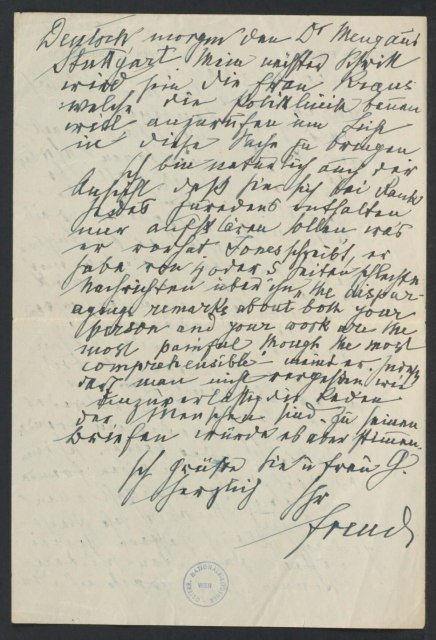 Deutsch morgen den Dr Meng aus
Stuttgart. Mein nächster Schritt
wird sein die Frau Kraus
welche die Poliklinik bauen
will anzurufen um Luft
in diese Sache zu bringen
Ich bin natürlich auch der
Ansicht daß Sie sich bei Rank
jedes Zuredens enthalten
nur aufklären sollen was
er vorhat. Jones schreibt, er
habe von 4 oder 5 Seiten schlechte
Nachrichten über ihn, the dispar-
aging remarks about both your
person and your work are the
most painful though the most
comprehensible meint er.
darf man nicht vergessen wie
unzuverlässig die Reden
der Menschen sind. Zu seinen
Briefen würde es aber stimmen.
Ich grüße Sie u Frau G.
herzlich Ihr
Freud
WIEN